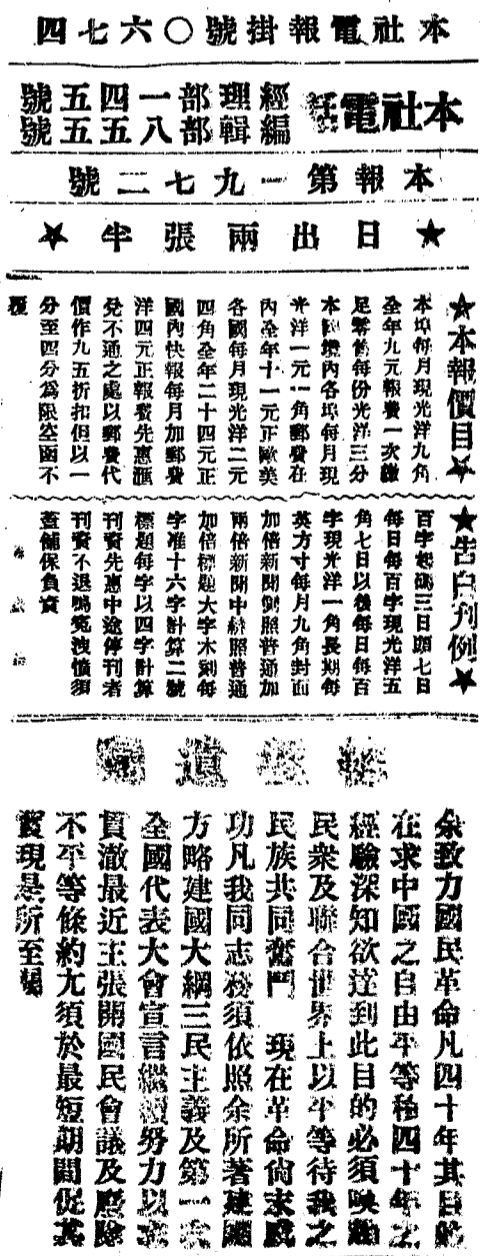 本社電報掛號〇六七四
本社電話
經理部一四五號
編輯部八五五號
本報第一九七二號
★日出兩張半★
★本報價目★
本埠每月現光洋九角
全年九元報費一次繳
足零售每份光洋三分
本國境內各埠每月現
光洋一元一角郵費在
內全年十一元正歐美
各國每月現光洋二元
四角全年二十四元正
國內快報每月加郵費
洋四元正報費先惠匯
兌不通之處以郵費代
價作九五折扣但以一
分至四分為限空函不
覆
★告白刊例★
百字起碼三日頭七日
每日每百字現光洋五
角七日以後每日每百
字現光洋一角長期每
英方寸每月九角封面
加倍新聞側照普通加
兩倍新聞中縫照普通
加倍標題大字木刻每
字准十六字計算二號
標題每字以四字計算
刊資先惠中途停刊者
刊資不退鳴冤洩憤須
蓋舖保負責
總理遺囑
余致力國民革命凡四十年其目的
在求中國之自由平等積四十年之
經驗深知欲達到此目的必須喚起
民衆及聯合世界上以平等待我之
民族共同奮鬥　現在革命尚未成
功凡我同志務須依照余所著建國
方略建國大綱三民主義及第一次
全國代表大會宣言繼續努力以求
貫澈最近主張開國民會議及廢除
不平等條約尤須於最短期間促其
實現是所至囑